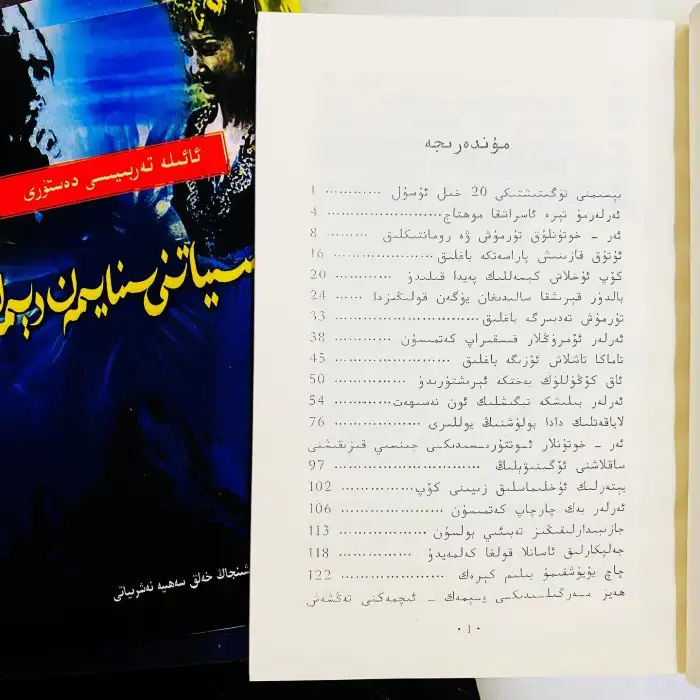 ئائىلە تەربىيىسى دەستۈرى
شىنجاڭ خەلق سەھىيە نەشرىياتى
مۇندەرىجە
بېسىمنى تۈگىتىشتىكى 20 خىل ئۇسۇل ............ 1
ئەرلەرمۇ تېرە ئاسراشقا موھتاج ........................ 4
ئەر - خوتۇنلۇق تۇرمۇش ۋە رومانتىكىلىق ............ 8
ئۇتۇق قازىنىش پاراسەتكە باغلىق ............ 16
كۆپ ئۇخلاش كېسەللىك پەيدا قىلىدۇ ............ 20
بالدۇر قېرىشقا سالىدىغان يۈگەن قولىڭىزدا ............ 24
تۇرمۇش تەدبىرگە باغلىق ............ 33
ئەرلەر ئۆمرۈڭلار قىسقىراپ كەتمىسۇن ............ 38
تاماكا تاشلاش ئۆزىگە باغلىق ............ 45
ئاق كۆڭۈللۈك بەختكە ئېرىشتۈرىدۇ ............ 50
ئەرلەر بىلىشكە تېگىشلىك ئون نەسىھەت ............ 54
لاياقەتلىك دادا بولۇشنىڭ يوللىرى ............ 76
ئەر - خوتۇنلار ئوتتۇرىسىدىكى جىنسىي قىزىقىشنى
ساقلاشنى ئۆگىنىۋېلىڭ ............ 97
يېتەرلىك ئۇخلىماسلىق زىيىنى كۆپ ............ 102
ئەرلەر بەك چارچاپ كەتمىسۇن ............ 106
جازىبىدارلىقىڭىز تەبىئىي بولسۇن ............ 113
جەلپكارلىق ئاسانلا قولغا كەلمەيدۇ ............ 118
چاچ يۇيۇشقىمۇ بىلىم كېرەك ............ 122
ھەيز مەزگىلىدىكى يېمەك - ئىچمەكنى تەڭشەش
· 1 ·